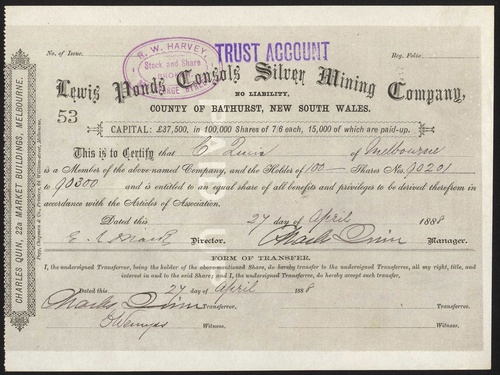 No. of Issue
Reg. Folio
R. W. HARVEY
Stock and Share
GEORGE STREET
TRUST ACCOUNT
Lewis Ponds Consols Silver Mining Company,
NO LIABILITY,
53
COUNTY OF BATHURST, NEW SOUTH WALES.
CAPITAL: £37,500, in 100,000 Shares of 7/6 each, 15,000 of which are paid-up.
This is to Certify that C Quin of Melbourne
is a Member of the above-named Company, and the Holder of 100 Shares No. 90201
to 90300 and is entitled to an equal share of all benefits and privileges to be derived therefrom in
accordance with the Articles of Association.
Dated this 27 day of April 1888
Director. Charles Quin Manager.
FORM OF TRANSFER.
I, the undersigned Transferror, being the holder of the above-mentioned Share, do hereby transfer to the undersigned Transferree, all my right, title, and
interest in and to the said Share; and I, the undersigned Transferree, do hereby accept such transfer.
Dated this 27 day of April 1888
Charles Quin Transferror. Transferree.
Witness. Witness.
CHARLES QUIN, 22a MARKET BUILDINGS, MELBOURNE.